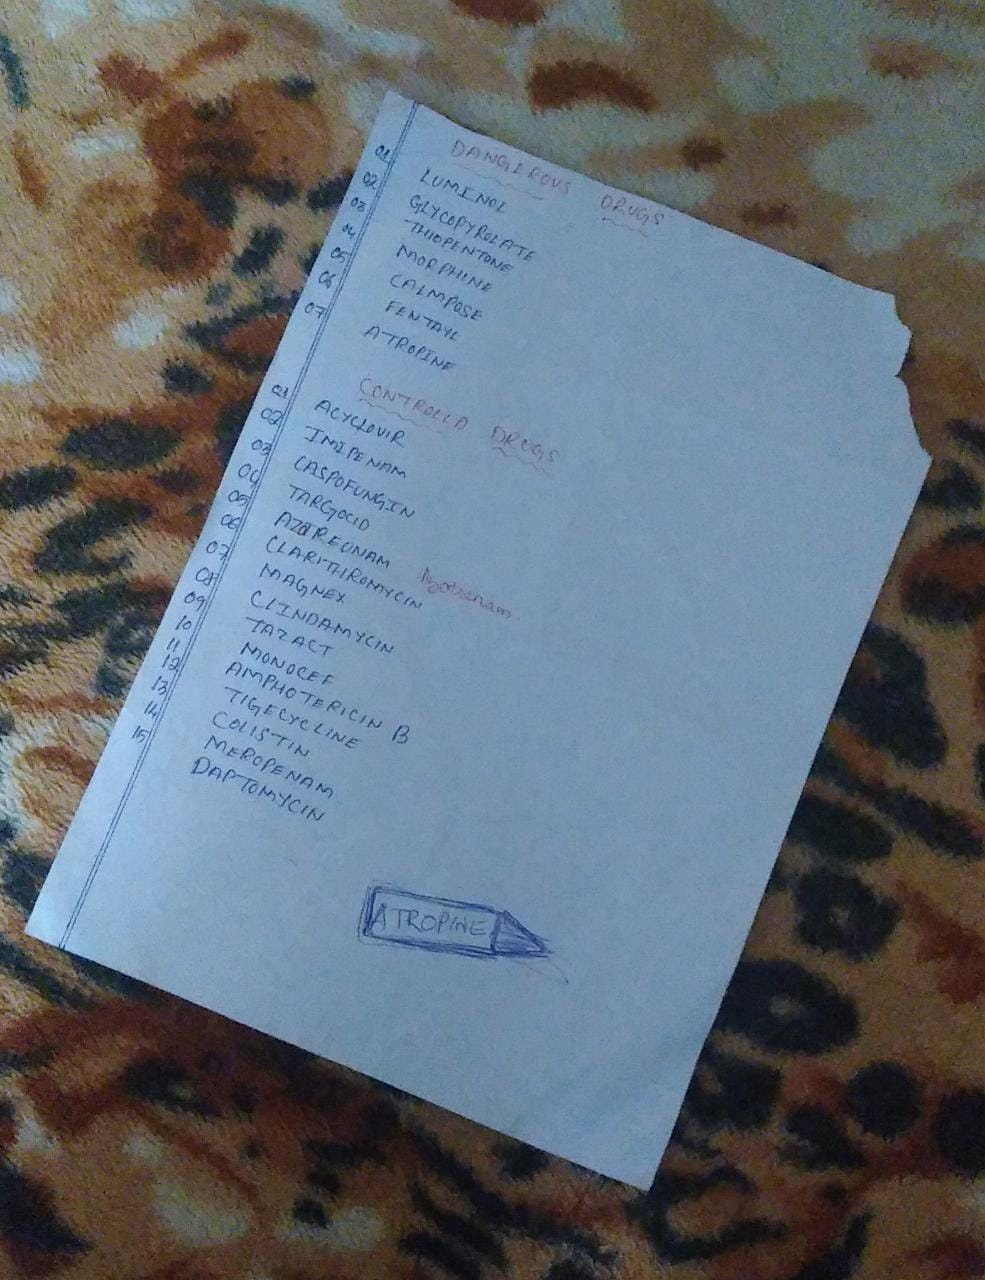 DANGEROUS DRUGS
01 LUMINOL
02 GLYCOPYROLATE
03 THIOPENTONE
04 MORPHINE
05 CALMPOSE
06 FENTAYL
07 ATROPINE
CONTROLLD DRUGS
01 ACYCLOVIR
02 IMIPENAM
03 CASPOFUNGIN
04 TARGOCID
05 AZTREONAM
06 CLARITHROMYCIN
07 MAGNEX
08 CLINDAMYCIN
09 TAZACT
10 MONOCEF
11 AMPHOTERICIN B
12 TIGECYCLINE
13 COLISTIN
14 MEROPENAM
15 DAPTOMYCIN
ATROPINE